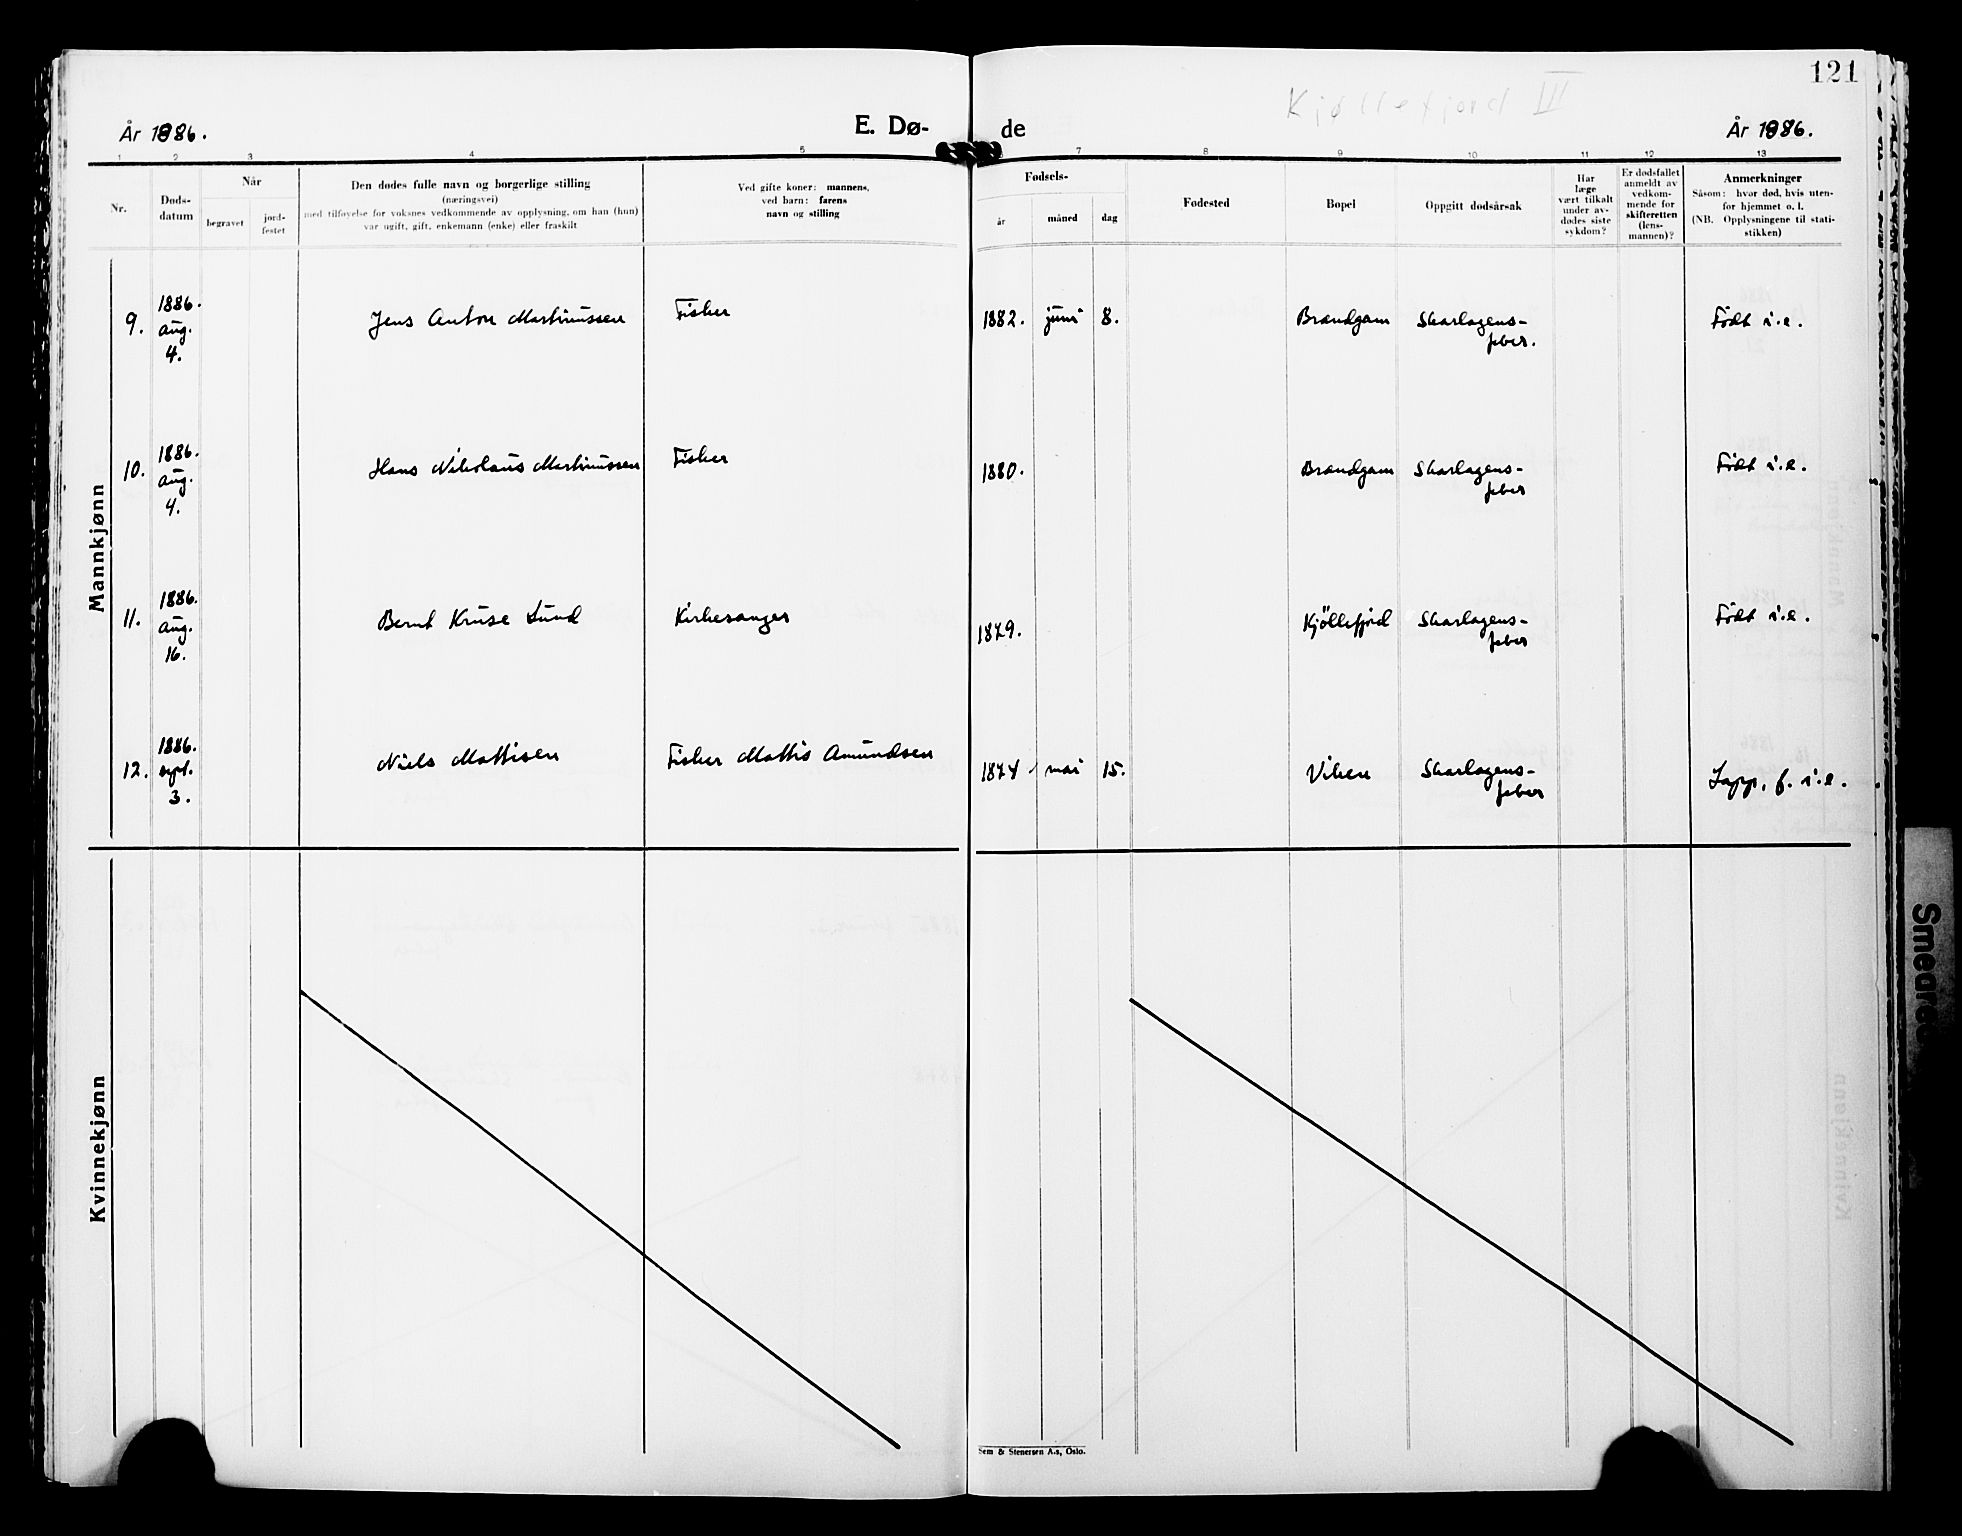 121
Kjøllefjord III
År 1886.
E. Dø-
de
År 1886.
1 2 3 4 5 7 8 9 10 11 12 13
Nr.
Døds-
datum
Når
begravet
jord-
festet
Den dødes fulle navn og borgerlige stilling
(næringsvei)
med tilføyelse for voksnes vedkommende av opplysning, om han (hun)
var ugift, gift, enkemann (enke) eller fraskilt
Ved gifte koner: mannens,
ved barn: farens
navn og stilling
Fødsels-
år
måned
dag
Fødested
Bopel
Oppgitt dødsårsak
Har
læge
vært tilkalt
under av-
dødes siste
sykdom?
Er dødsfallet
anmeldt av
vedkom-
mende for
skifteretten
(lens-
mannen)?
Anmerkninger
Såsom: hvor død, hvis uten-
for hjemmet o. l.
(NB. Opplysningene til stati-
stikken)
Mannkjønn
9.
1886.
aug.
4.
Jens Anton Martinussen
Fisker
1882. juni 8.
Brandgam
Skarlagens-
feber.
Født i.e.
10.
1886.
aug.
4.
Hans Nikolaus Martinussen
Fisker
1880.
Brandgam
Skarlagens-
feber
Født i.e.
11.
1886.
aug.
16.
Bernt Kruse Lund
Kirkesanger
1879.
Kjöllefjord
Skarlagens-
feber
Født i.e.
12.
1886.
sept.
3.
Niels Mattisen
Fisker Mattis Amundsen
1874 mai 15.
Viken
Skarlagens-
feber
Lapp. f. i.e.
Kvinnekjønn
Sem & Stenersen A.s, Oslo.